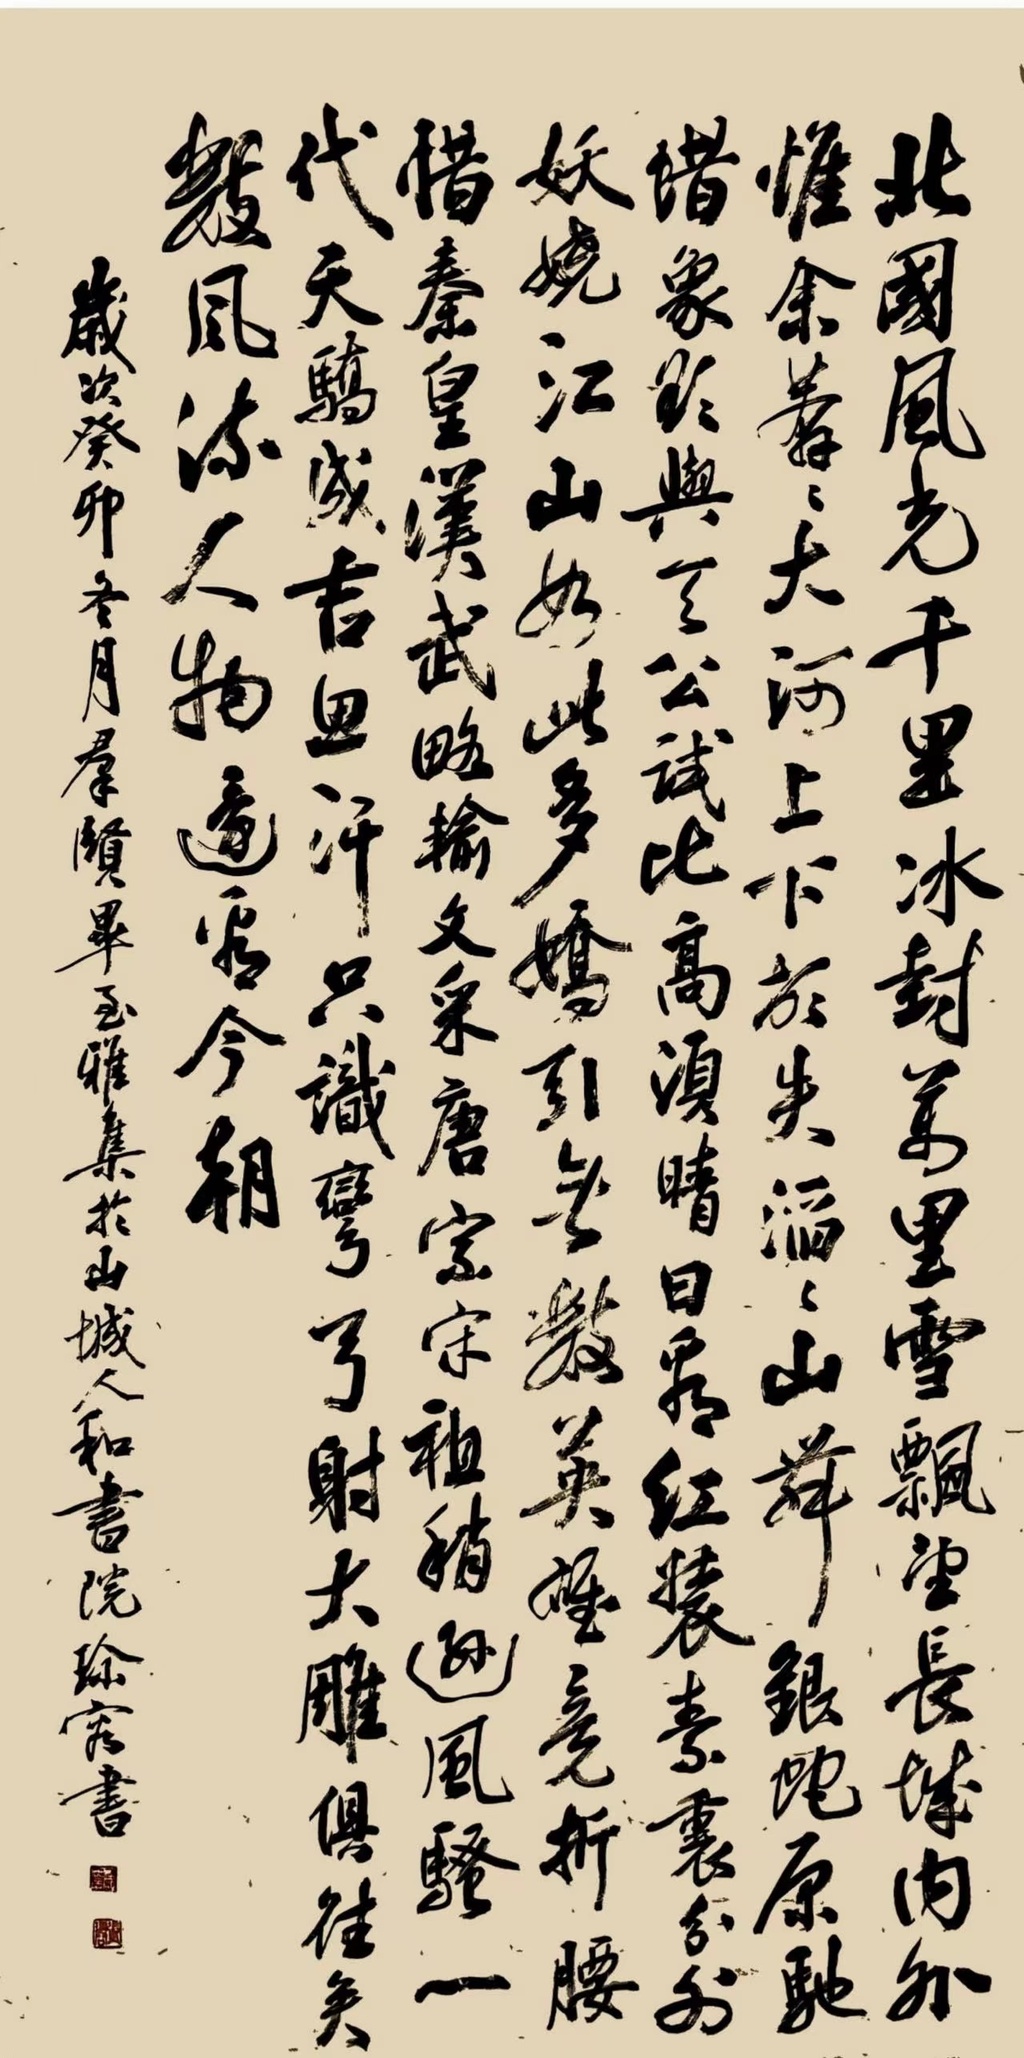 北國風光千里冰封萬里雪飄望長城內外
惟余莽〻大河上下頓失滔〻山舞銀蛇原馳
蜡象欲與天公試比高須晴日看紅裝素裹分外
妖嬈江山如此多嬌引無數英雄競折腰
惜秦皇漢武略輸文采唐宗宋祖稍遜風騷一
代天驕成吉思汗只識彎弓射大雕俱往矣
數風流人物還看今朝
歲次癸卯冬月群賢畢至雅集於山城人和書院 書